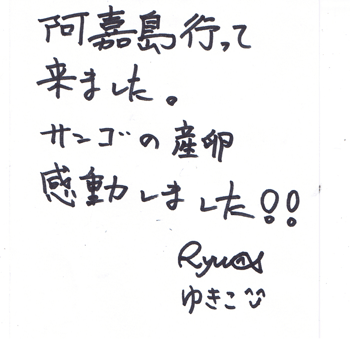 阿嘉島行って
来ました。
サンゴの産卵
感動しました!!
ゆきこ